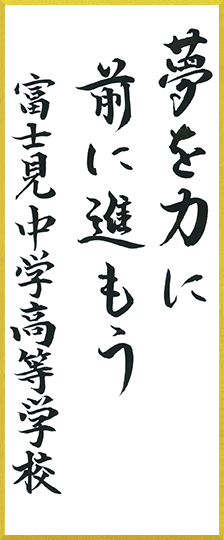 夢を力に
前に進もう
富士見中学高等学校